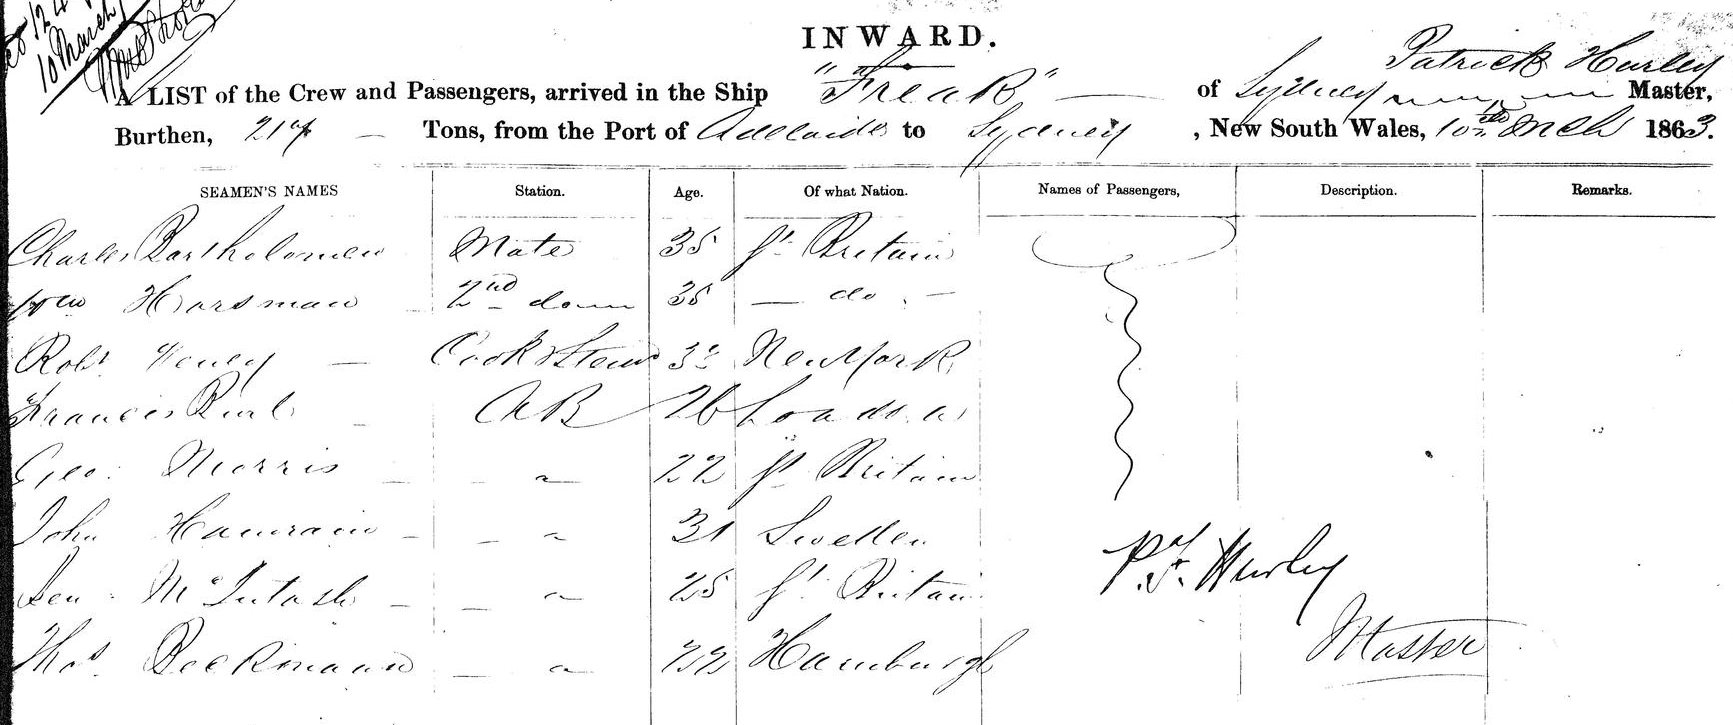 10 March
INWARD.
Patrick Hurley
A LIST of the Crew and Passengers, arrived in the Ship "Freak" of Sydney Master,
Burthen, 217 Tons, from the Port of Adelaide to Sydney, New South Wales, 10th Mch 1863.
SEAMEN'S NAMES Station. Age. Of what Nation. Names of Passengers, Description. Remarks.
Charles Bartholomew Mate 35 Gt Britain
Wm Horsman 2nd do 35 — do —
Robt Cook & Stewd New York
Francis AB 26 London
Geo. Morris 22 Gt Britain
John 31 Sweden
McIntosh 25 Gt Britain
P. F. Hurley
Master
Thos Beekmann 22 Hamburgh